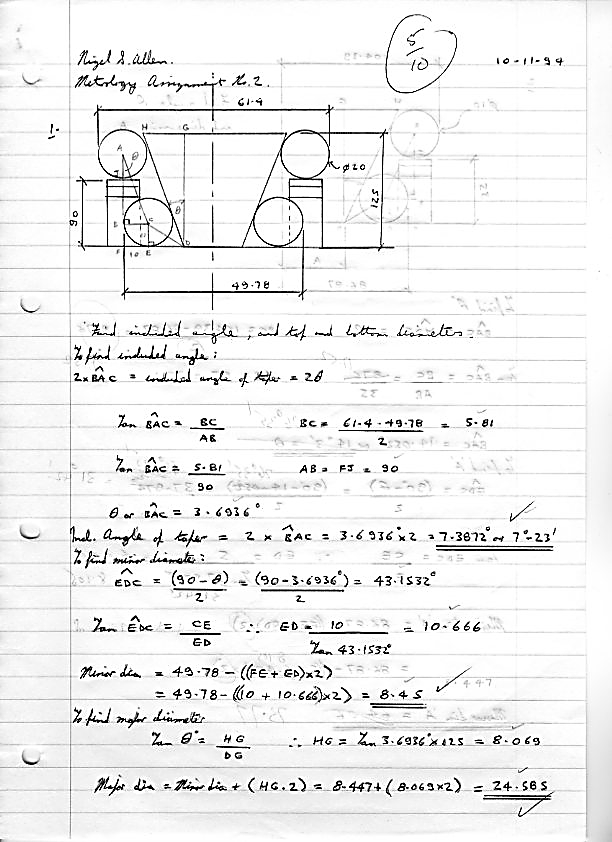 Nigel S. Allen.
5/10
10-11-94
Metrology Assignment No. 2.
1.
61.4
A H G
A θ
J
ø20
90
125
θ
B C
D
F 10 E
49.78
Find included angle, and top and bottom diameters.
To find included angle:
2×BÂC = included angle of taper = 2θ
Tan BÂC = BC/AB BC = (61.4 - 49.78)/2 = 5.81
Tan BÂC = 5.81/90 AB = FJ = 90
θ or BÂC = 3.6936°
Incl. Angle of taper = 2 × BÂC = 3.6936°×2 = 7.3872° or 7°-23'
To find minor diameter:
EDC = (90-θ)/2 = (90-3.6936°)/2 = 43.1532°
Tan EDC = CE/ED ∴ ED = 10/Tan 43.1532° = 10.666
Minor dia = 49.78 - ((FE + ED)×2)
= 49.78 - ((10 + 10.666)×2) = 8.45
8.447
To find major diameter
Tan θ° = HG/DG ∴ HG = Tan 3.6936°×125 = 8.069
Major Dia = Minor dia + (HG.2) = 8.447 + (8.069×2) = 24.585